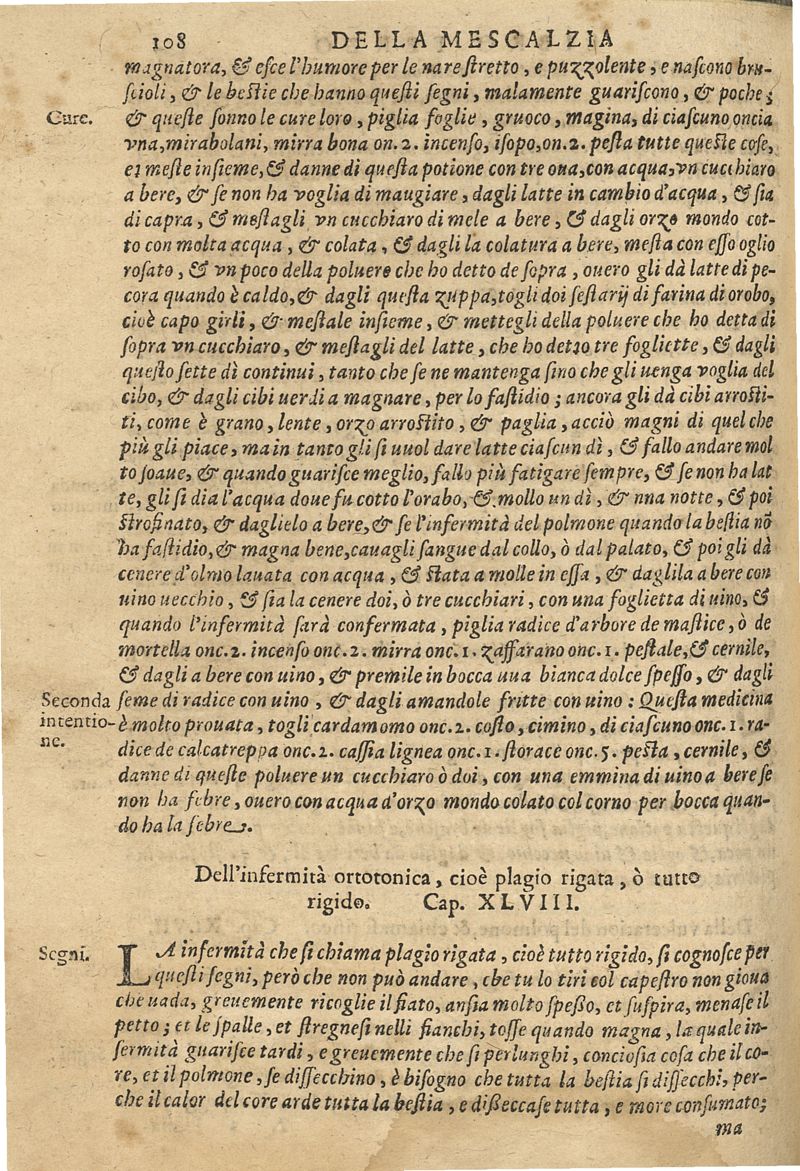 108 DELLA MESCALZIA
magnatora, & esce l'humore per le nare stretto, e puzzolente, e nascono bru-
scioli, & le bestie che hanno questi segni, malamente guariscono, & poche;
Cure.
& queste sonno le cure loro, piglia foglie, gruoco, magina, di ciascuno oncia
vna, mirabolani, mirra bona on. 2. incenso, isopo, on. 2. pesta tutte queste cose,
et meste insieme, & danne di questa potione con tre oua, con acqua, vn cucchiaro
a bere, & se non ha voglia di maugiare, dagli latte in cambio d'acqua, & sia
di capra, & mestagli vn cucchiaro di mele a bere, & dagli orzo mondo cot-
to con molta acqua, & colata, & dagli la colatura a bere, mesta con esso oglio
rosato, & vn poco della poluere che ho detto de sopra, ouero gli dà latte di pe-
cora quando è caldo, & dagli questa zuppa, togli doi sestarij di farina di orobo,
cioè capo girli, & mestale insieme, & mettegli della poluere che ho detta di
sopra vn cucchiaro, & mestagli del latte, che ho detto tre fogliette, & dagli
questo sette dì continui, tanto che se ne mantenga sino che gli uenga voglia del
cibo, & dagli cibi uerdi a magnare, per lo fastidio; ancora gli dà cibi arrosti-
ti, come è grano, lente, orzo arrostito, & paglia, acciò magni di quel che
più gli piace, ma in tanto gli si uuol dare latte ciascun dì, & fallo andare mol
to soaue, & quando guarisce meglio, fallo più fatigare sempre, & se non ha lat
te, gli si dia l'acqua doue fu cotto l'orabo, & mollo un dì, & nna notte, & poi
strofinato, & daglielo a bere, & se l'infermità del polmone quando la bestia nō
ha fastidio, & magna bene, cauagli sangue dal collo, ò dal palato, & poi gli dà
cenere d'olmo lauata con acqua, & stata a molle in essa, & daglila a bere con
uino uecchio, & sia la cenere doi, ò tre cucchiari, con una foglietta di uino, &
quando l'infermità sarà confermata, piglia radice d'arbore de mastice, ò de
mortella onc. 2. incenso onc. 2. mirra onc. 1. zaffarano onc. 1. pestale, & cernile,
& dagli a bere con uino, & premile in bocca uua bianca dolce spesso, & dagli
Seconda intentio-
ne.
seme di radice con uino, & dagli amandole fritte con uino: Questa medicina
è molto prouata, togli cardamomo onc. 2. costo, cimino, di ciascuno onc. 1. ra-
dice de calcatreppa onc. 2. cassia lignea onc. 1. storace onc. 5. pesta, cernile, &
danne di queste poluere un cucchiaro ò doi, con una emmina di uino a bere se
non ha febre, ouero con acqua d'orzo mondo colato col corno per bocca quan-
do ha la febre.
Dell'infermità ortotonica, cioè plagio rigata, ò tutto
rigido. Cap. XLVIII.
Segni.
LA infermità che si chiama plagio rigata, cioè tutto rigido, si cognosce per
questi segni, però che non può andare, che tu lo tiri col capestro non gioua
che uada, greuemente ricoglie il fiato, ansia molto spesso, et suspira, menase il
petto; et le spalle, et stregnesi nelli fianchi, tosse quando magna, la quale in-
fermità guarisce tardi, e greuemente che si perlunghi, conciosia cosa che il co-
re, et il polmone, se dissecchino, è bisogno che tutta la bestia si dissecchi, per-
che il calor del core arde tutta la bestia, e disseccase tutta, e more consumato;
ma